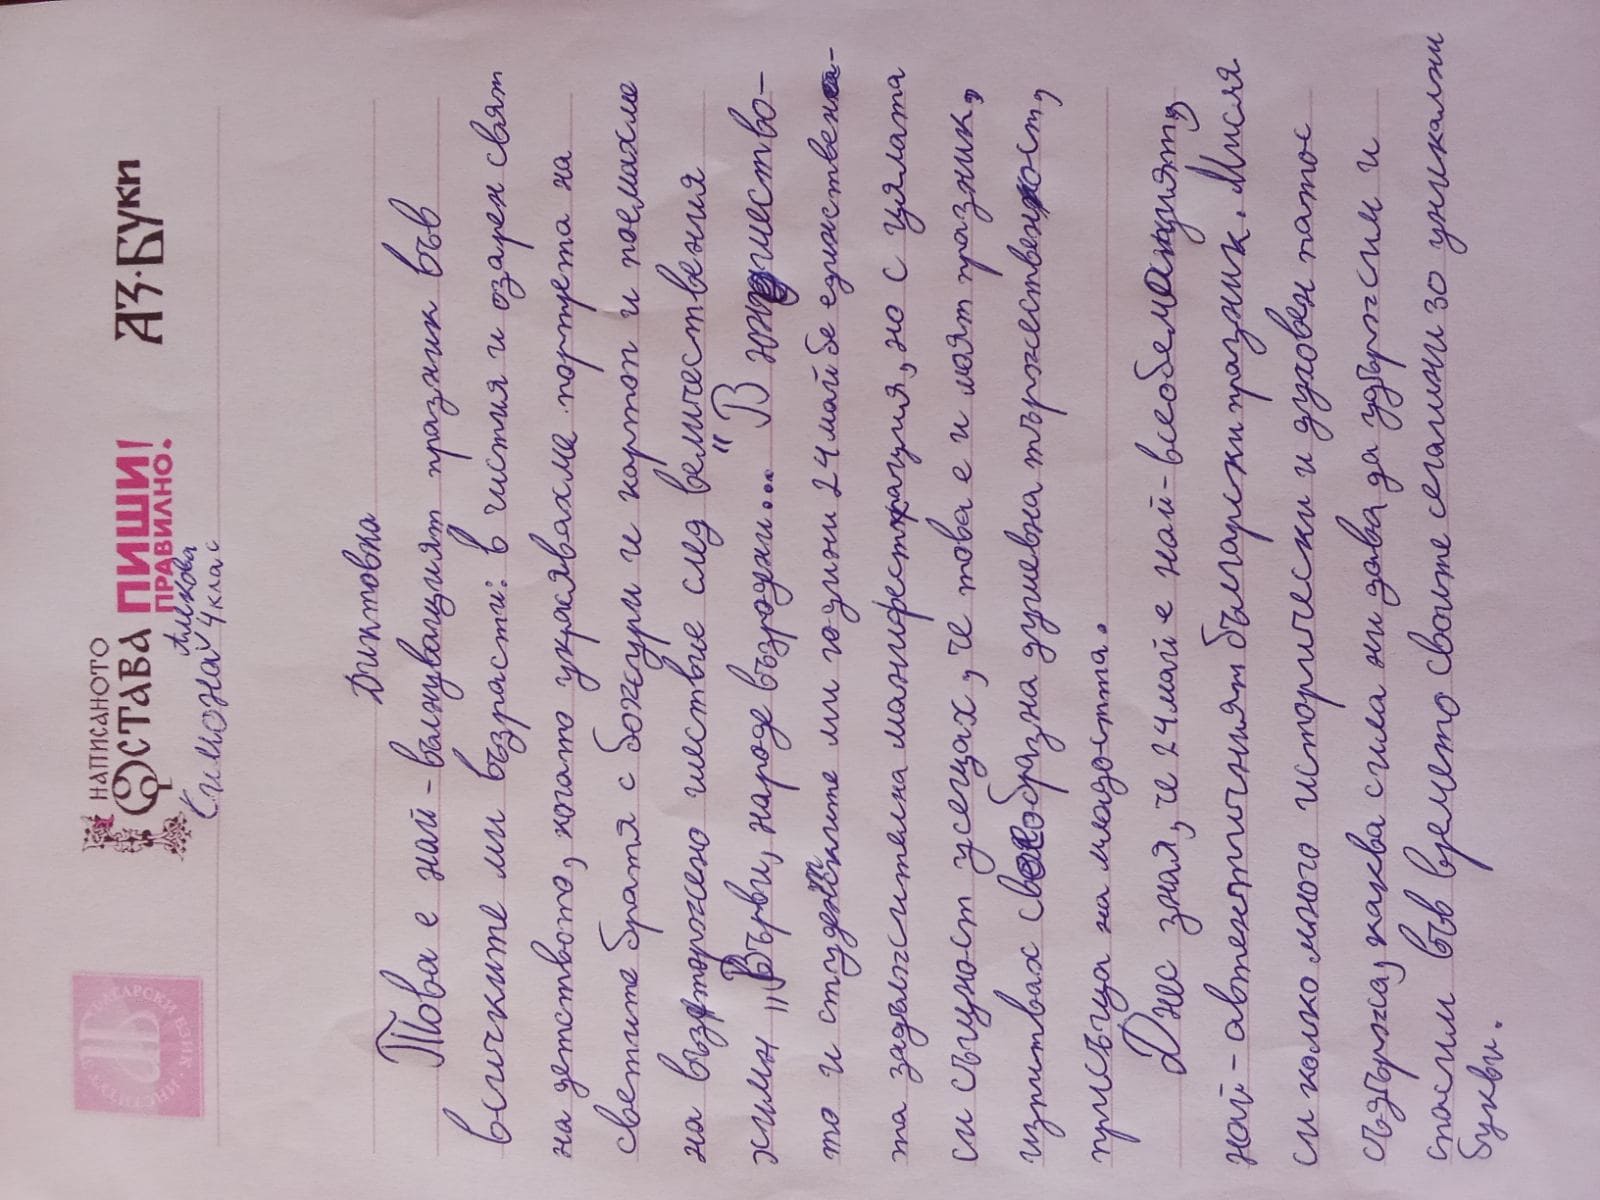 БЪЛГАРСКИ ЕЗИК · ИНСТИТУТ
НАПИСАНОТО
ОСТАВА
ПИШИ!
ПРАВИЛНО.
АЗ·БУКИ
Симонай Алекова
4 клас
Диктовка
Това е най-вълнуващият празник във
всичките ми възрасти: в чистия и озарен свят
на детството, когато украсявахме портрета на
светите братя с божури и картоп и поемахме
на възторжено шествие след величествения
химн „Върви, народе възродени..." В юношество-
то и студентските ми години 24 май бе единствена-
та задължителна манифестация, но с цялата
си същност усещах, че това е и моят празник,
изпитвах своеобразна душевна тържественост,
присъща на младостта.
Днес зная, че 24 май е най-всеобемащият,
най-автентичният български празник. Мисля
си колко много исторически и духовен патос
съдържа, каква сила ни дава да удържим и
спасим във времето своите сегашни зо уникални
букви.